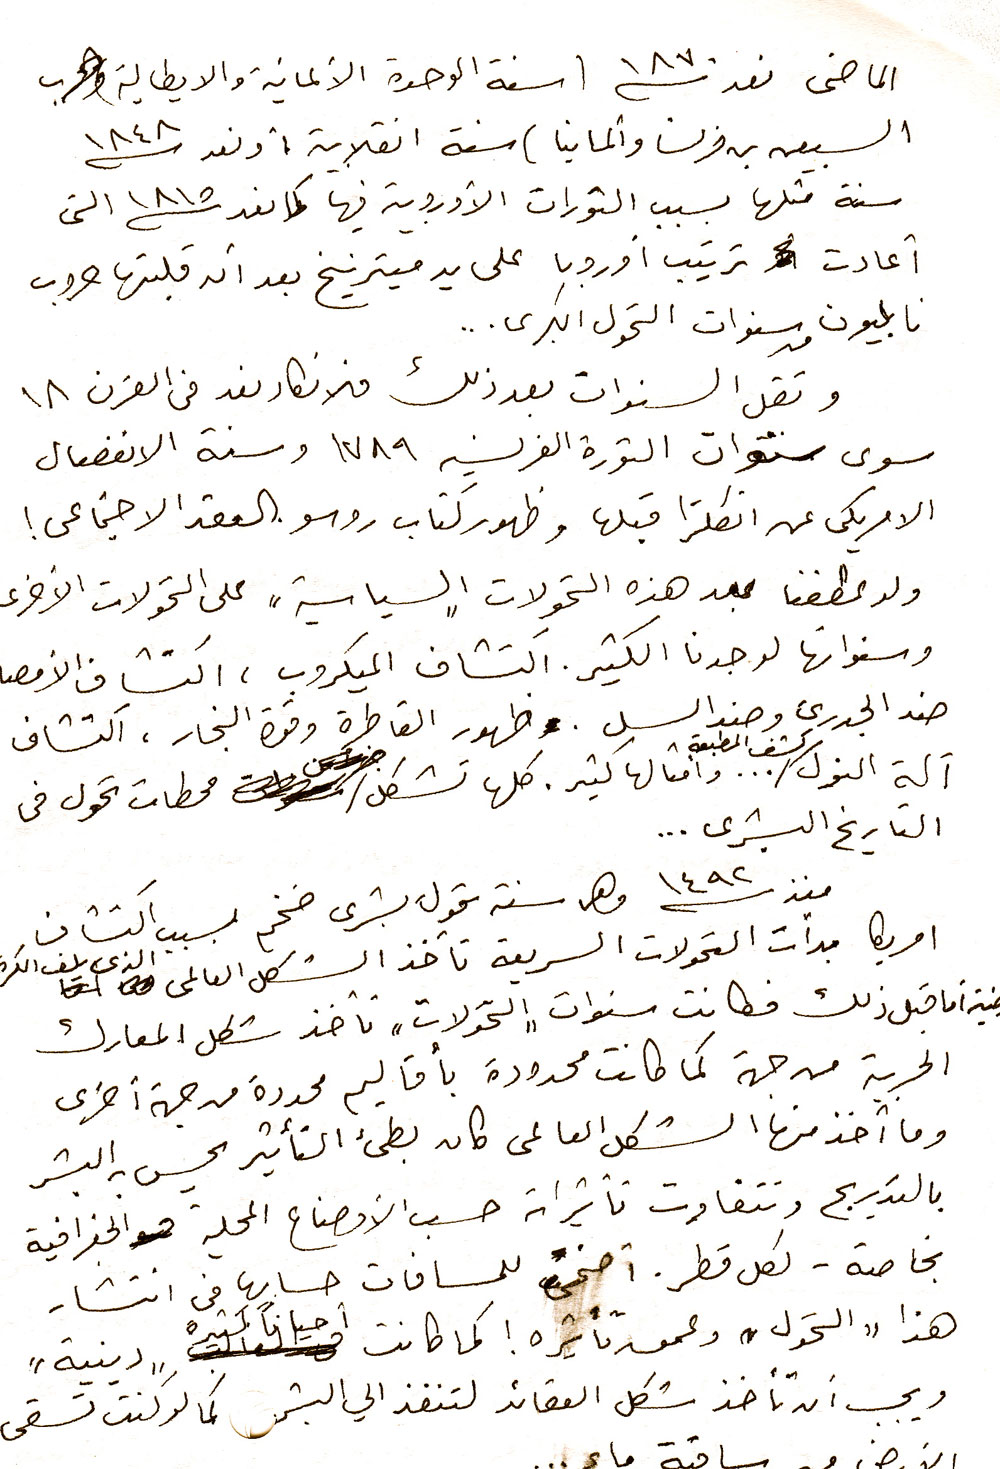 الماضى نعد سنة ١٨٧ (سنة الوحدة الألمانية والايطالية وحرب
السبعين بين فرنسا وألمانيا) سنة انقلابية ، أو نعد سنة ١٨٤٨
سنة مثلها بسبب الثورات الأوروبية فيها كما نعد سنة ١٨١٥ التى
أعادت ترتيب أوروبا على يد ميترنيخ بعد أن قلبتها حروب
نابليون من سنوات التحول الكبرى...
وتقل السنوات بعد ذلك فلا نكاد نعد فى القرن ١٨
سوى سنوات الثورة الفرنسية ١٧٨٩ وسنة الانفصال
الامريكى عن انكلترا قبلها وظهور كتاب روسو . العقد الاجتماعى !
ولو عطفنا بعد هذه التحولات "السياسية" على التحولات الأخرى
وسنواتها لوجدنا الكثير . اكتشاف الميكروب ، اكتشاف الأمصال
ضد الجدرى وضد السل . ظهور القاطرة وقوة البخار ، اكتشاف
آلة النول / كشف المطبعة ... وأمثالها كثير . كلها تشكل محطات تحول فى
التاريخ البشرى ...
منذ سنة ١٤٩٢ وهى سنة تحول بشرى ضخم بسبب اكتشاف
امريكا بدأت التحولات السريعة تأخذ الشكل العالمى الذى يلف الكرة
أما قبل ذلك فكانت سنوات "التحولات" تأخذ شكل المعارك
الحربية من جهة كما كانت محدودة بأقاليم محددة من جهة أخرى
وما أخذ منها الشكل العالمى كان بطئ التأثير يحس به البشر
بالتدريج وتتفاوت تأثيراته حسب الأوضاع المحلية والجغرافية
بخاصة - لكل قطر . للمسافات حسابها فى انتشار
هذا "التحول" وعمق تأثيره ! كما كانت أحيانا كثيرة "دينية"
ويجب أن تأخذ شكل العقائد لتنفذ الي البشر كما لو كنت تسقى
الأرض من ساقية ماء ...